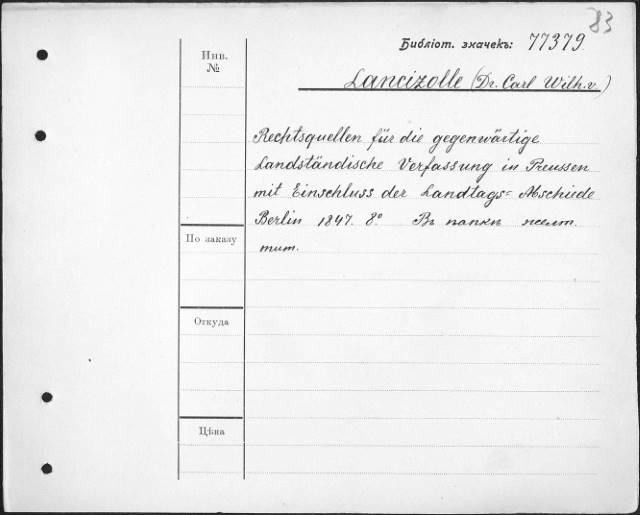 83
Библіот. значекъ: 77379.
Инв.
№
Lancizolle (Dr. Carl Wilh. v.)
Rechtsquellen für die gegenwärtige
Landständische Verfassung in Preussen
mit Einschluss der Landtags= Abschiede
Berlin 1847. 8º. Въ папкѣ желт.
тит.
По заказу
Откуда
Цѣна